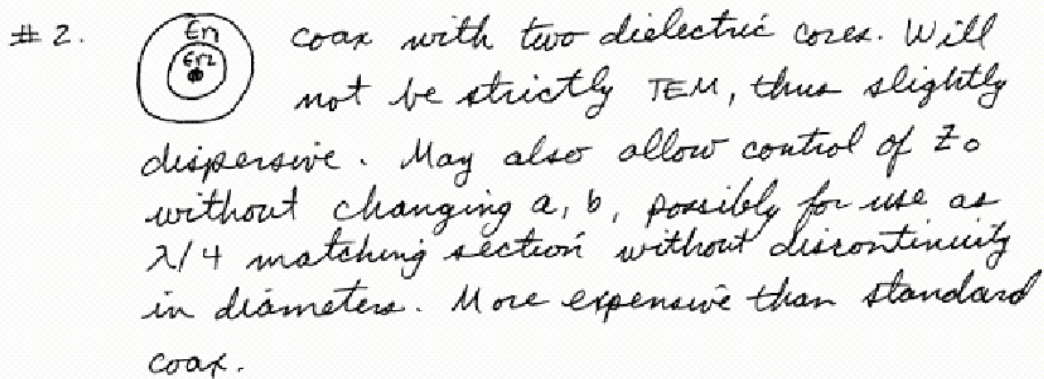 #2. coax with two dielectric cores. Will
Er1
Er2
not be strictly TEM, thus slightly
dispersive. May also allow control of Z0
without changing a, b, possibly for use as
λ/4 matching section without discontinuity
in diameters. More expensive than standard
coax.